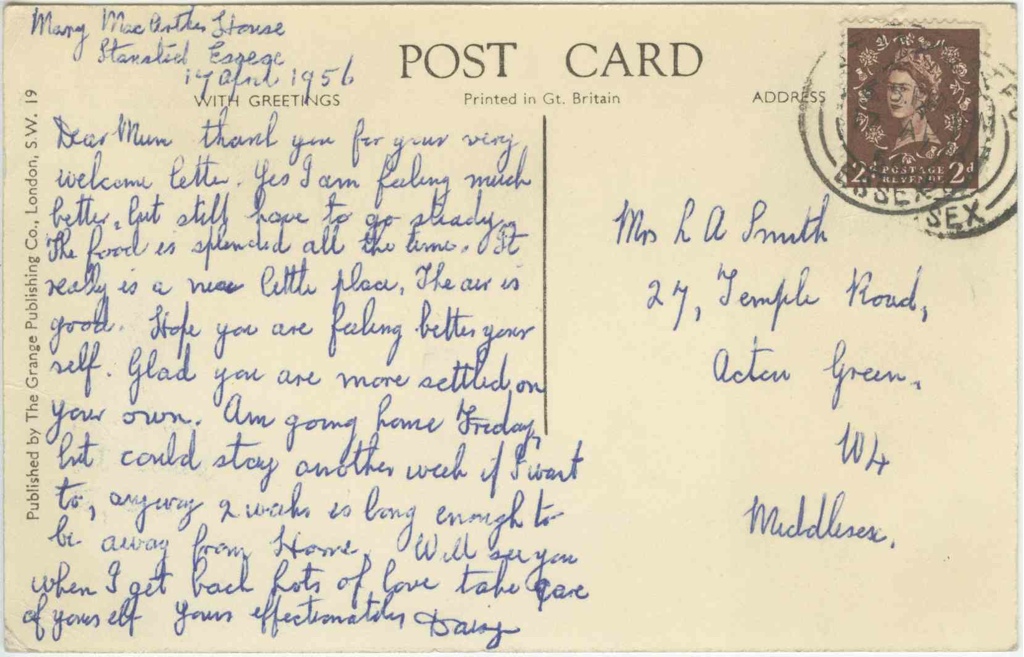 Mary MacArther House
Stansted Essex
17 April 1956
POST CARD
WITH GREETINGS
Printed in Gt. Britain
ADDRESS
Published by The Grange Publishing Co., London, S.W. 19
Dear Mum thank you for your very
welcome letter. Yes I am feeling much
better, but still have to go steady.
The food is splended all the time. It
really is a nice little place, The air is
good. Hope you are feeling better your
self. Glad you are more settled, on
your own. Am going home Friday,
but could stay another week if I want
to, anyway 2 weeks is long enough to
be away from Home. Will see you
when I get back Lots of love take care
of yourself yours effectionatley Daisy
Mrs L A Smith
27, Temple Road,
Acton Green,
W4
Middlesex.
2d POSTAGE REVENUE 2d
ESSEX
SEX